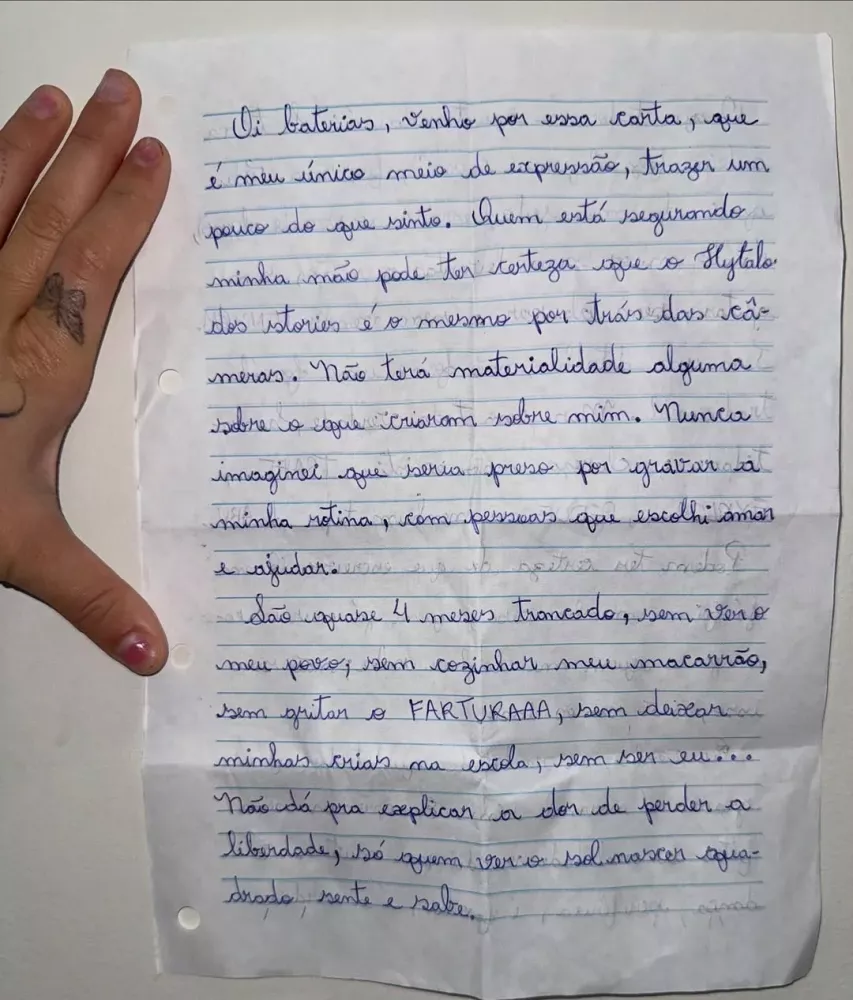 Oi baterias, venho por essa carta, que
é meu único meio de expressão, trazer um
pouco do que sinto. Quem está segurando
minha mão pode ter certeza que o Hytalo
dos stories é o mesmo por trás das câ-
meras. Não terá materialidade alguma
sobre o que criaram sobre mim. Nunca
imaginei que seria preso por gravar a
minha rotina, com pessoas que escolhi amar
e ajudar.
São quase 4 meses trancado, sem ver o
meu povo, sem cozinhar meu macarrão,
sem gritar o FARTURAAA, sem deixar
minhas crias na escola, sem ser eu...
Não dá pra explicar a dor de perder a
liberdade, só quem ver o sol nascer qua-
drado, sente e sabe.